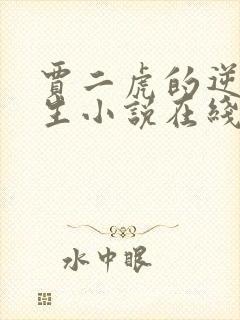 賈二虎的逆
生小說在綫
水中眠